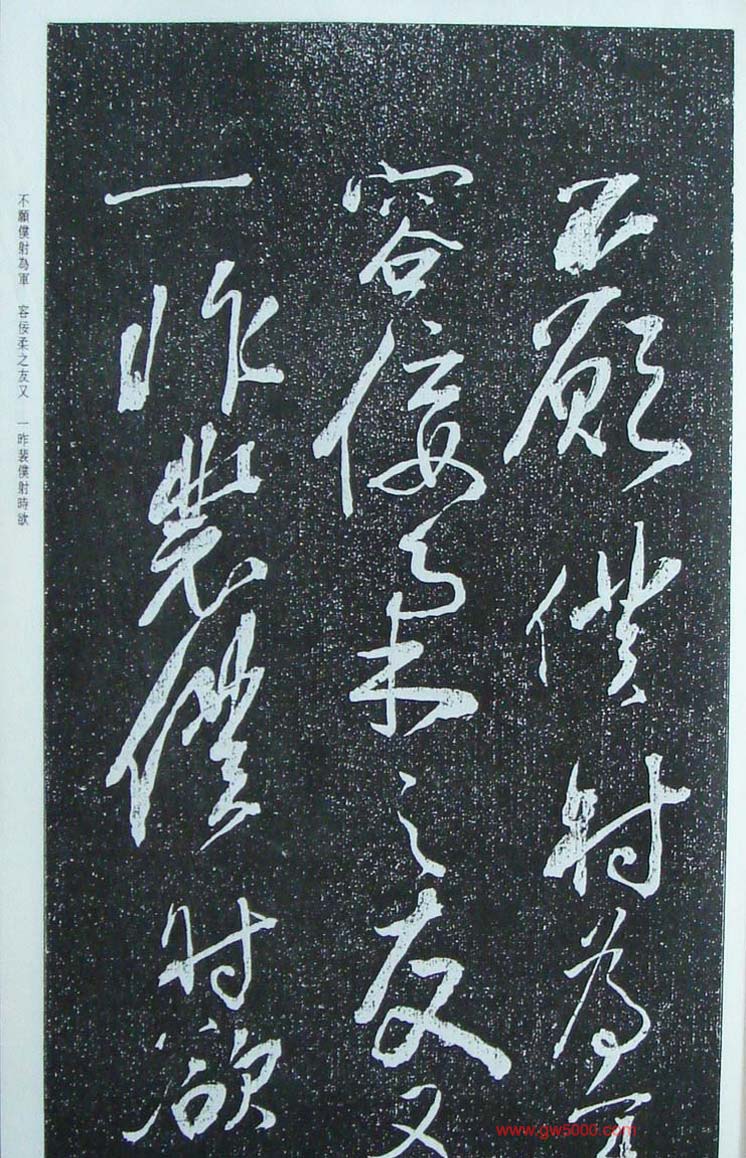 不願僕射為軍
容佞柔之友又
一昨裴僕射欲
不願僕射為軍　容佞柔之友又　一昨裴僕射時欲
www.gw5000.com